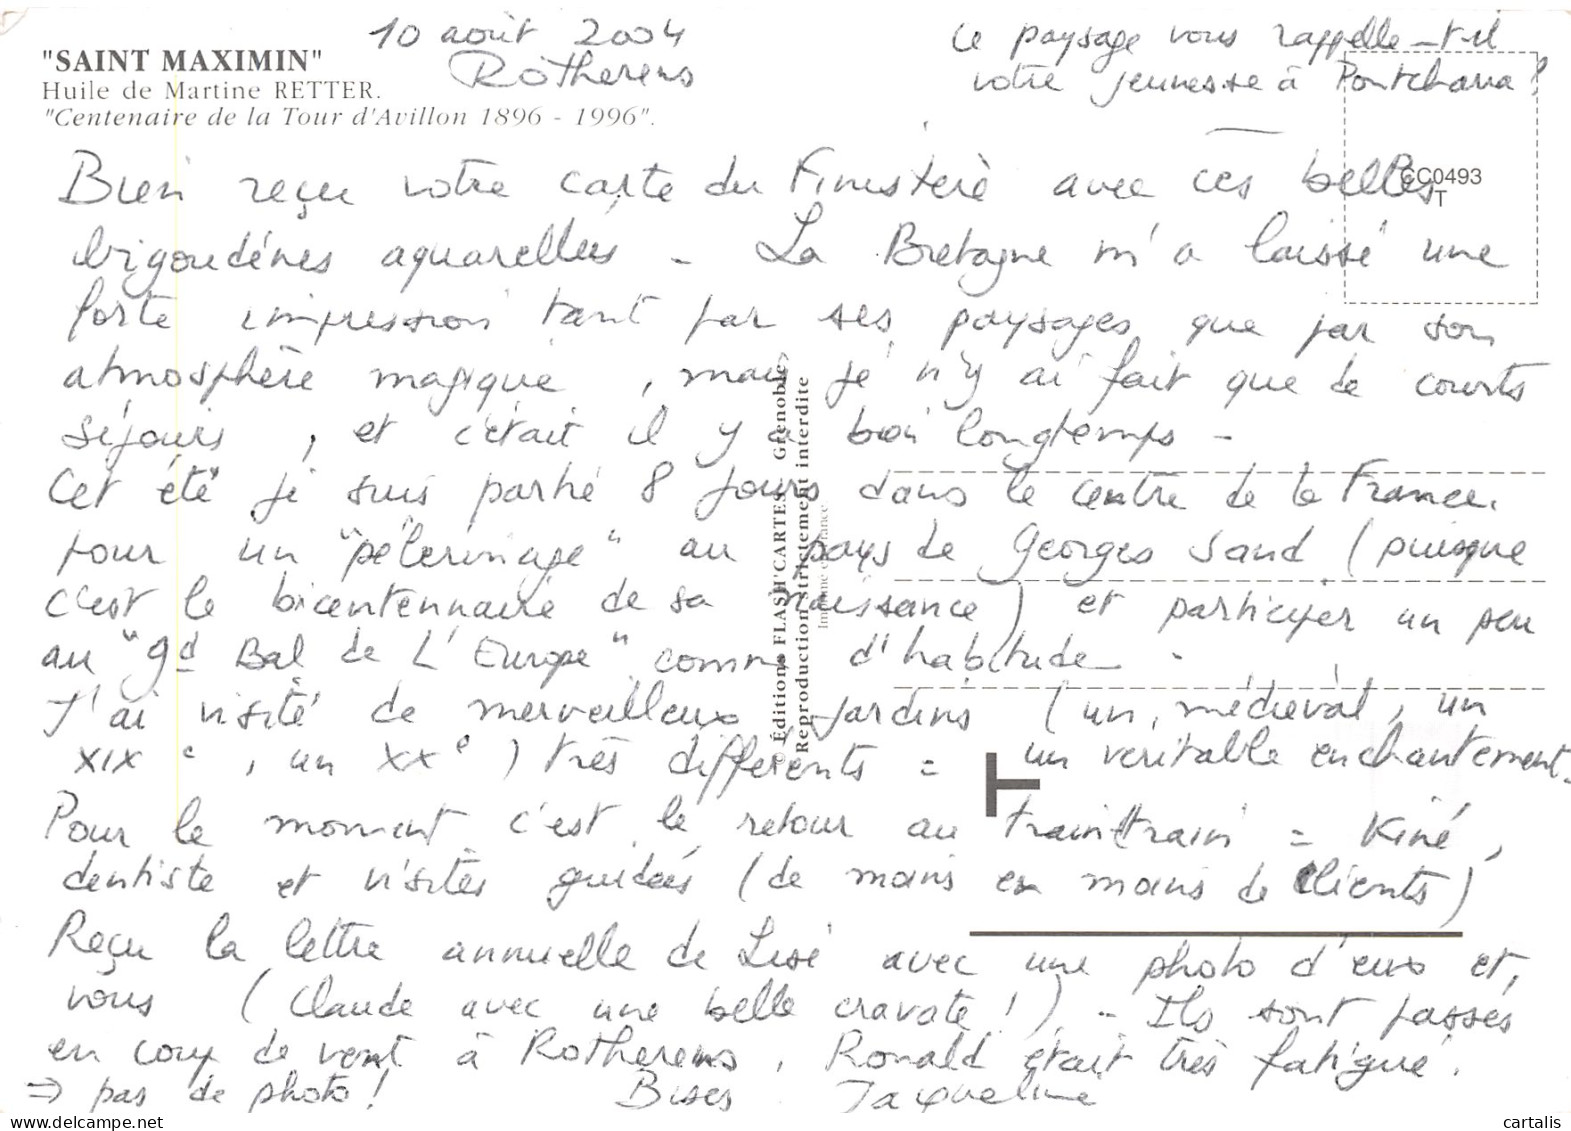 "SAINT MAXIMIN"
Huile de Martine RETTER.
"Centenaire de la Tour d'Avillon 1896 - 1996".
10 août 2004
Rotherens
Ce paysage vous rappelle-t-il
votre jeunesse à Pontcharra ?
CC0493
T
Bien reçu votre carte du Finistère avec ces belles
bigoudènes aquarellées - La Bretagne m'a laissé une
forte impression tant par ses paysages que par son
atmosphère magique, mais je n'y ai fait que de courts
séjours, et c'était il y a bien longtemps -
Cet été je suis partie 8 jours dans le centre de la France.
pour un "pélerinage" au pays de Georges Sand (puisque
c'est le bicentennaire de sa naissance) et participer un peu
au "gd Bal de L'Europe" comme d'habitude -
J'ai visité de merveilleux jardins (un médiéval, un
XIXe, un XXe) très différents = un véritable enchantement.
Pour le moment c'est le retour au traintrain = Kiné,
dentiste et visites guidées (de moins en moins de clients)
Reçu la lettre annuelle de Lise avec une photo d'eux et,
vous (Claude avec une belle cravate !) - Ils sont passés
en coup de vent à Rotherens. Ronald était très fatigué.
⇒ pas de photo ! Bises Jacqueline
© Éditions FLASH'CARTES Grenoble
Reproduction strictement interdite
Imprimé en France
cartalis